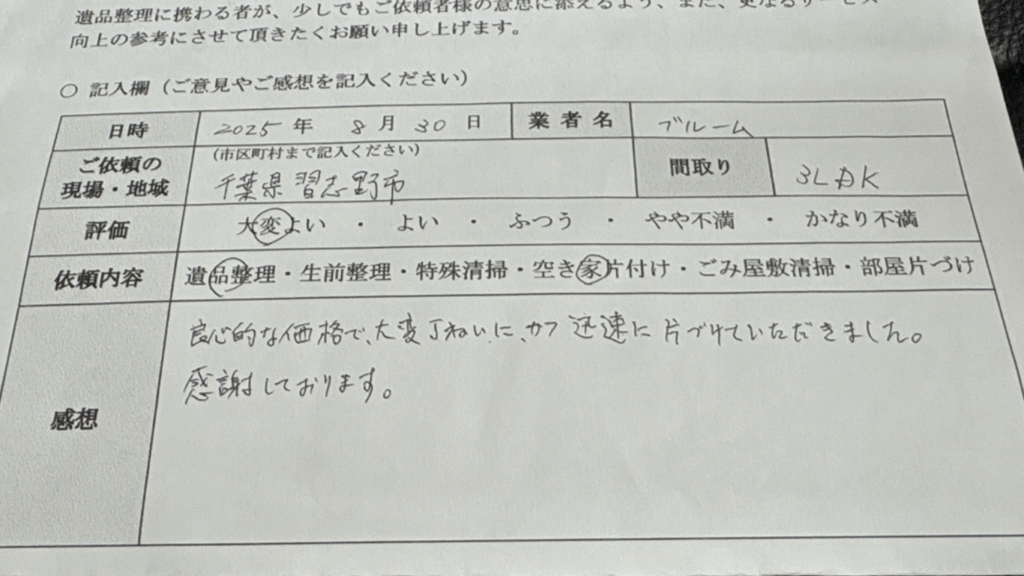 遺品整理に携わる者が、少しでもご依頼者様の意思に添えるよう、また、更なるサービス
向上の参考にさせて頂きたくお願い申し上げます。
○ 記入欄（ご意見やご感想を記入ください）
日時 2025 年 8 月 30 日 業者名 ブルーム
ご依頼の現場・地域 （市区町村まで記入ください） 千葉県習志野市 間取り 3LDK
評価 大変よい ・ よい ・ ふつう ・ やや不満 ・ かなり不満
依頼内容 遺品整理・生前整理・特殊清掃・空き家片付け・ごみ屋敷清掃・部屋片づけ
感想
良心的な価格で、大変丁ねいに、かつ迅速に片づけていただきました。
感謝しております。